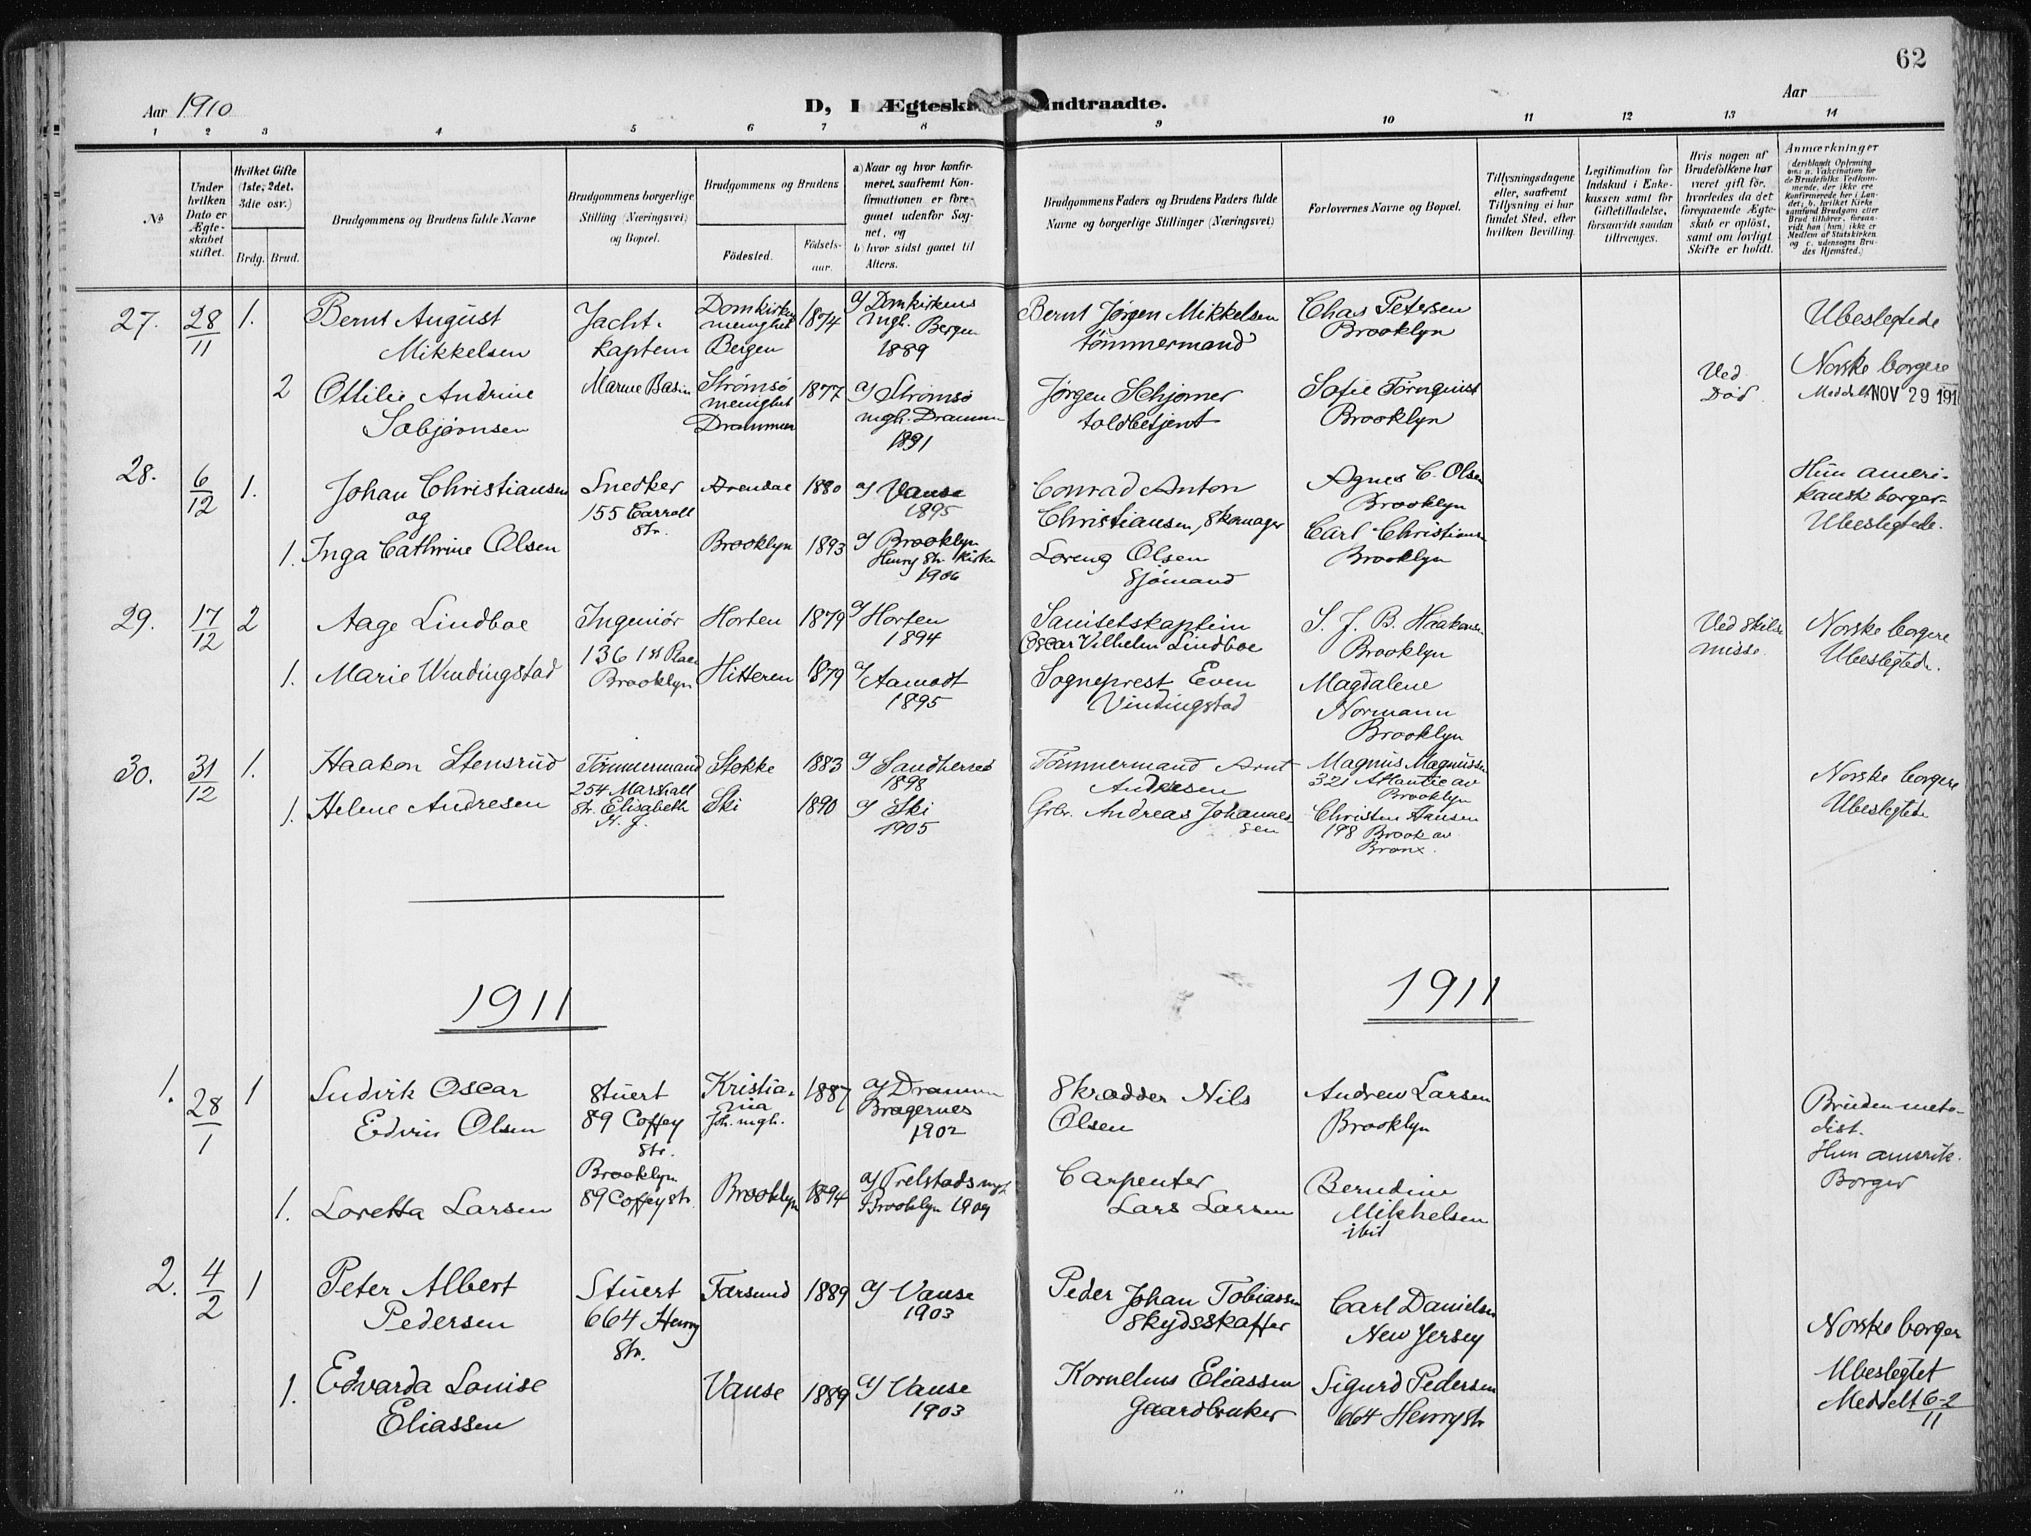 62
Aar 1910
D, I Ægteska
indtraadte.
Aar
1 2 3 4 5 6 7 8 9 10 11 12 13 14
No
Under hvilken Dato er Ægteskabet stiftet.
Hvilket Gifte (1ste, 2det, 3die osv.)
Brdg. Brud.
Brudgommens og Brudens fulde Navne
Brudgommens borgerlige Stilling (Næringsvei) og Bopæl.
Brudgommens og Brudens
Födested.
Födselsaar.
a) Naar og hvor konfirmeret, saafremt Konfirmationen er foregaaet udenfor Sognet, og
b) hvor sidst gaaet til Alters.
Brudgommens Faders og Brudens Faders fulde Navne og borgerlige Stillinger (Næringsvei)
Forlovernes Navne og Bopæl.
Tillysningsdagene eller, saafremt Tillysning ei har fundet Sted, efter hvilken Bevilling.
Legitimation for Indskud i Enkekassen samt for Giftetilladelse, forsaavidt saadan tiltrænges.
Hvis nogen af Brudefolkene har været gift før, hvorledes da det foregaaende Ægteskab er oplöst, samt om lovligt Skifte er holdt.
Anmærkninger
(deriblandt Oplysning om: a. Vakcination for de Brudefolks Vedkommende, der ikke ere konfirmerede her i Landet; b. hvilket Kirkesamfund Brudgom eller Brud tilhører, forsaavidt han (hun) ikke er Medlem af Statskirken og c. udensogns Brudes Hjemsted.)
27. 28/11 1. Bernt August Mikkelsen
Jachtkaptein
Marine Basin
Domkirkemenighet Bergen 1874
a/ Domkirkens mgh. Bergen 1889
Bernt Jørgen Mikkelsen tømmermand
Chas Petersen Brooklyn
Ubeslegtede
2 Ottilie Andrine Sobjørnsen
Strømsø menighet Drammen 1877
a/ Strømsø mgh. Drammen 1891
Jørgen Schjømer toldbetjent
Sofie Törnquist Brooklyn
Ved Død
Norske borgere
Meddelt NOV 29 191
28. 6/12 1. Johan Christiansen
og
Snedker
155 Carroll str.
Arendal 1880
a/ Vanse 1895
Conrad Anton Christiansen, Skomager
Agnes C. Olsen Brooklyn
Hun amerikansk borger
Ubeslegtede.
1. Inga Cathrine Olsen
Brooklyn 1893
a/ Brooklyn Henry Str. Kirke 1906
Loreng Olsen Sjømand
Carl Christians Brooklyn
29. 17/12 2 Aage Lindboe
Ingeniør
136 1st Place Brooklyn
Horten 1879
a/ Horten 1894
Sanitetskaptein Oscar Vilhelm Lindboe
S. J. B. Haakons Brooklyn
Ved Skilsmisse.
Norske borgere
Ubeslegtede.
1. Marie Vindingstad
Hitteren 1879
a/ Aamodt 1895
Sogneprest Even Vindingstad
Magdalene Normann Brooklyn
30. 31/12 1. Haakon Stensrud
Tømmermand
254 Marshall str. Elisabeth N. J.
Stokke 1883
a/ Sandherred 1898
Tømmermand Arnt Andresen
Magnus Magnussen
321 Atlantic av Brooklyn
Norske borgere
Ubeslegtede
1. Helene Andresen
Ski 1890
a/ Ski 1905
Grbr. Andreas Johannessen
Christen Hansen
198 Brook av Bronx.
1911
1911
1. 28/1 1 Ludvik Oscar Edvin Olsen
Stuert
89 Coffey Str. Brooklyn
Kristiania Joh. mgh. 1887
a/ Drammen Bragernes 1902
Skrædder Nils Olsen
Andrew Larsen Brooklyn
Bruden metodist.
Hun amerik. Borger
1. Loretta Larsen
89 Coffey str.
Brooklyn 1894
a/ Frelstads mgh. Brooklyn 1909
Carpenter Lars Larsen
Berndine Mikkelsen ibid
2. 4/2 1 Peter Albert Pedersen
Stuert
664 Henry Str.
Farsund 1889
a/ Vanse 1903
Peder Johan Tobiassen Skydsskaffer
Carl Danielsen New Jersey
Norske borger
1. Edvarda Louise Eliassen
Vanse 1889
a/ Vanse 1903
Kornelius Eliassen Gaardbruker
Sigurd Pedersen
664 Henry str
Ubeslegtet
Meddelt 6-2/11